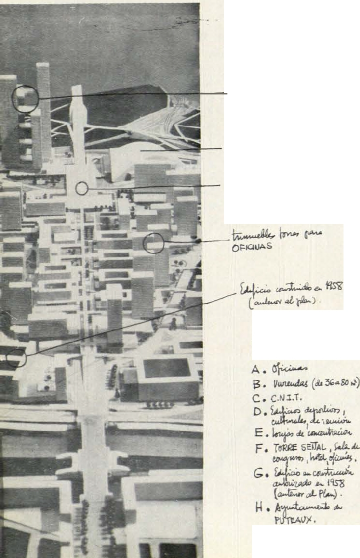 Inmuebles torres para
OFICINAS
Edificio construido en 1958
(anterior al plan).
A. Oficinas
B. Viviendas (de 36 a 80 m²)
C. C.N.I.T.
D. Edificios deportivos,
culturales, de reunión
E. de concentración
F. TORRE SEÑAL, Sala de
congresos, hotel, oficinas,
G. Edificio en construcción
autorizado en 1958
(anterior al Plan).
H. Ayuntamiento de
PUTEAUX.